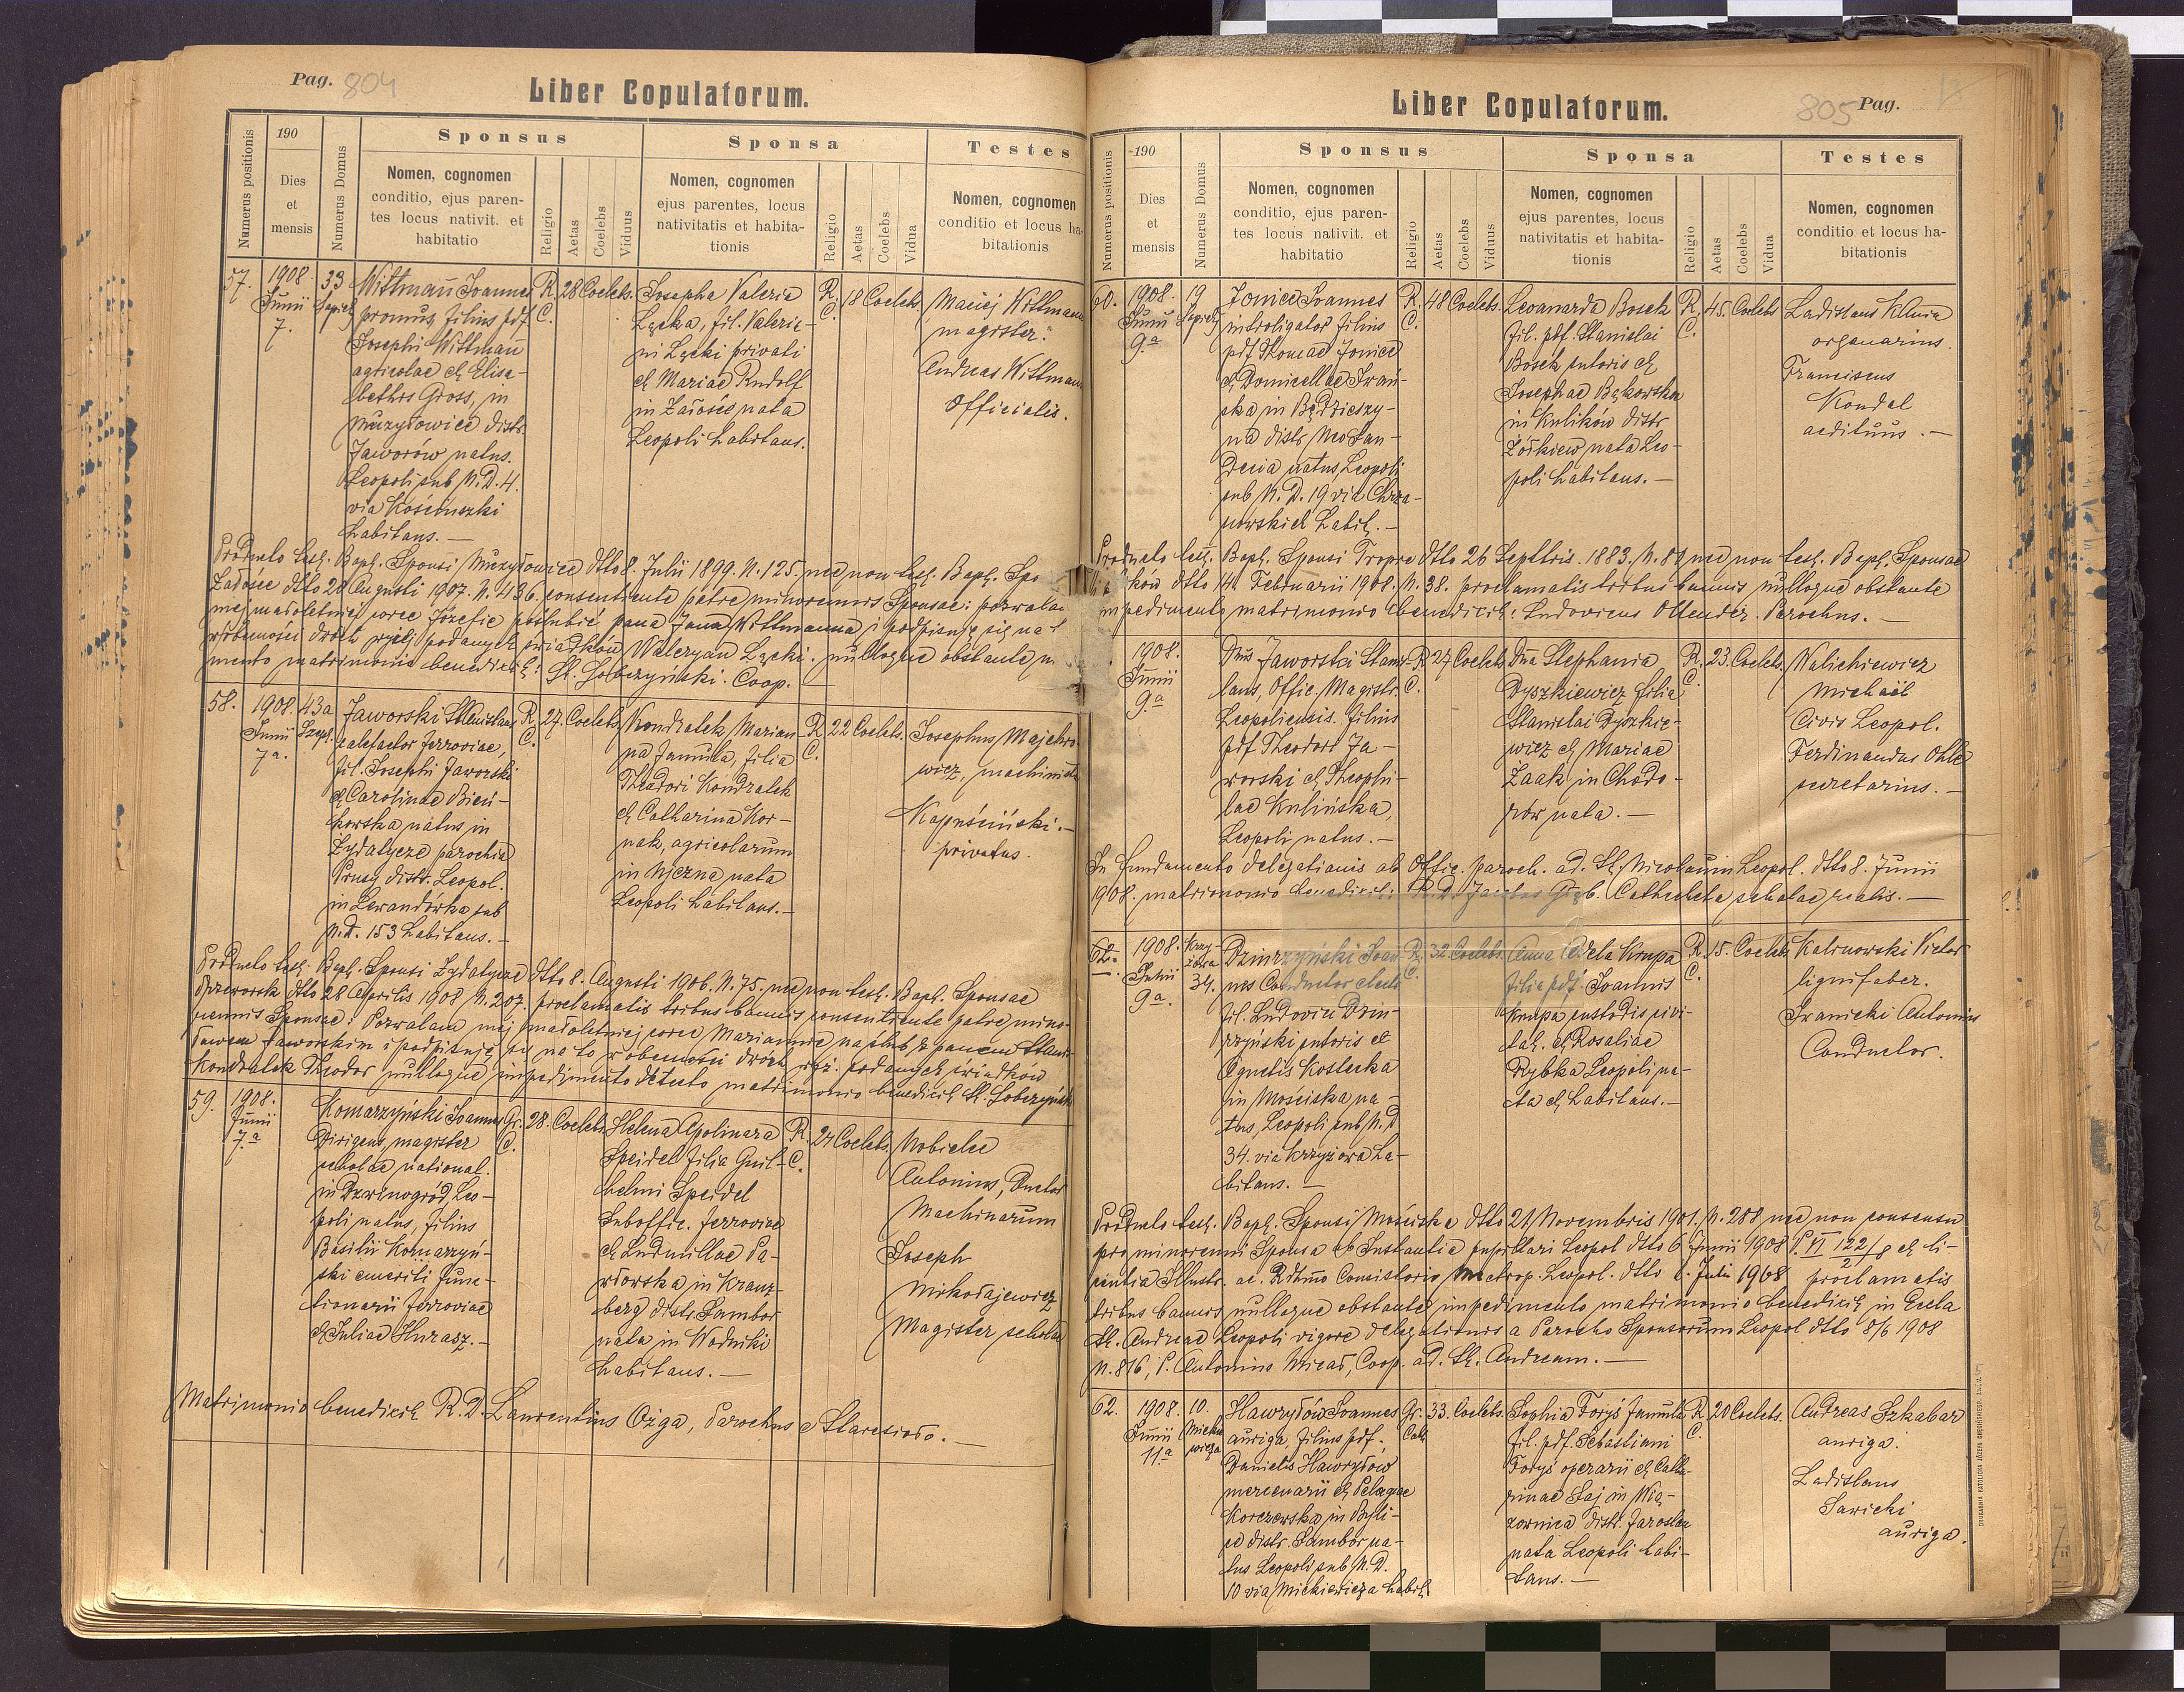 Pag. 804
Liber Copulatorum.
Numerus positionis
190
Dies
et
mensis
Numerus Domus
Sponsus
Nomen, cognomen
conditio, ejus paren-
tes locus nativit. et
habitatio
Religio
Aetas
Coelebs
Viduus
Sponsa
Nomen, cognomen
ejus parentes, locus
nativitatis et habita-
tionis
Religio
Aetas
Coelebs
Vidua
Testes
Nomen, cognomen
conditio et locus ha-
bitationis
57.
1908.
Junii
7.
33
Wittmann Joannes
promus, filius pdf.
Josephi Wittmann
agricolae et Elisa-
bethis Gross, in
Muzyłowice distr.
Jaworów natus.
Leopoli sub N.D. 4.
via Kościuszki
habitans. —
R.
C.
28
Coelebs.
Josepha Valeria
Łącka, fil. Valeria-
ni Łącki privati
et Mariae Rudolf
in Załośce nata
Leopoli habitans.
R.
C.
18
Coelebs.
Maciej Wittmann
magister.
Andreas Wittmann
officialis.
Producto test. Bapt. Sponsi Muzyłowice dtto 8. Julii 1899. N. 125. nec non test. Bapt. Spo
Załosce dtto 20 Augusti 1907. N. 436. consentiente patre minorennis Sponsae: pozwalam
mej małoletniej córce Józefie poślubić pana Jana Wittmanna i podpisuję się na t
w obecności dwóch wyżej podanych świadków Waleryan Łącki. nulloque obstante
mento matrimonio benedixit: St. Sobczyński. Coop. —
58.
1908.
Junii
7a.
43a
Szept.
Jaworski Stanislaus
calefactor ferroviae,
fil. Josephi Jaworski
et Carolinae Bień-
kowska natus in
Żydatycze parochia
Prusy distr. Leopol.
in Lewandówka sub
N.D. 153 habitans. —
R.
C.
27.
Coelebs.
Kondratek, Marian-
na famula, filia
Theodori Kondratek
et Catharina Kor-
nak, agricolarum
nata
Leopoli habitans. —
R.
C.
22
Coelebs.
Josephus Majchro-
wicz, machinista
Kapuściński. —
privatus.
Producto test. Bapt. Sponsi Żydatycze dtto 8. Augusti 1906. N. 75. nec non test. Bapt. Sponsae
Przeworsk dtto 28 Aprilis 1908 N. 207. proclamatis tribus bannis consentiente patre mino-
rennis Sponsae: Pozwalam mej małoletniej córce Mariannie na ślub z panem Stani-
sławem Jaworskim i podpisuję się na to w obecności dwóch wyż. podanych świadków
Kondratek Theodor nulloque impedimento detecto matrimonio benedixit St. Sobczyński
59.
1908.
Junii
7.a
Komarzyński Joannes
Dirigens magister
scholae national.
in Dzwinogród, Leo-
poli natus, filius
Basilii Komarzyń-
ski emeriti func-
tionarii ferroviae
et Juliae Hurasz. —
Gr.
C.
28.
Coelebs.
Helena Apolinara
Speidel filia Guil-
helmi Speidel
Suboffic. ferroviae
et Ludmillae Pa-
włowska in Kranz-
berg distr. Sambor
nata in Wodniki
habitans. —
R.
C.
24
Coelebs.
Nobielec
Antonius, Ductor
Machinarum
Joseph
Mikołajewicz
Magister scholae
Matrimonio benedixit R.D. Laurentius Ożga, Parochus e Staresioło. —
Liber Copulatorum.
805 Pag.
Numerus positionis
190
Dies
et
mensis
Numerus Domus
Sponsus
Nomen, cognomen
conditio, ejus paren-
tes locus nativit. et
habitatio
Religio
Aetas
Coelebs
Viduus
Sponsa
Nomen, cognomen
ejus parentes, locus
nativitatis et habita-
tionis
Religio
Aetas
Coelebs
Vidua
Testes
Nomen, cognomen
conditio et locus ha-
bitationis
60.
1908.
Junii
9.a
19
Jonice Joannes
introligator filius
pdf Thomae Jonice
et Domicellae Iwań-
ska in
na distr. Neo San-
decia natus, Leopoli
sub N.D. 19 via Chrza-
nowskiej habit. —
R.
C.
48
Coelebs.
Leonarda Bosek
fil. pdf. Stanislai
Bosek sutoris et
Josephae Bąkowska
in Kulików distr
Żółkiew nata Leo-
poli habitans. —
R.
C.
45.
Coelebs
Ladislaus Klima
organarius.
Franciscus
Kondel
aedituus. —
Producto test. Bapt. Sponsi Tropie dtto 26 Septbris. 1883. N. 80 nec non test. Bapt. Sponsae
ków dtto 14. Februarii 1908. N. 38. proclamatis tribus bannis nulloque obstante
impedimento matrimonio benedixit: Ludovicus Ollender. Parochus. —
1908.
Junii
9.a
Dnus Jaworski Stanis-
laus, Offic. Magistr.
Leopoliensis. filius
pdf Theodori Ja-
worski et Theophi-
lae Kulińska,
Leopoli natus. —
R.
C.
27
Coelebs.
Dna Stephania
Dyszkiewicz filia
Stanislai Dyszkie-
wicz et Mariae
Żaak in Chodo-
rów nata. —
R.
C.
23.
Coelebs.
Walichiewicz
Michaël
Civis Leopol.
Ferdinandus Ohle
secretarius. —
In fundamento delegationis ab Offic. paroch. ad. St. Nicolaum Leopol. dtto 8. Junii
1908. matrimonio benedixit: R.D. Jacobus Głąb. Cathecheta scholae realis. —
62.
1908.
Junii
9a.
Krzy-
żowa
34.
Dzinrzyński Joan-
nes Conductor electr.
fil. Ludovici Dzin-
rzyński sutoris et
Agnetis Kostecka
in Mościska na-
tus, Leopoli sub N.D
34. via Krzyżowa ha-
bitans. —
R.
C.
32
Coelebs.
Anna Adela Krupa
filia pdf. Joannis
Krupa custodis civi-
tat. et Rosaliae
Rybka Leopoli na-
ta et habitans. —
R.
C.
15.
Coelebs
Kalinowski Victor
lignifaber.
Iwanicki Antonius
Conductor.
Producto test. Bapt. Sponsi Mościska dtto 21 Novembris 1901. N. 288 nec non consensu
pro minorenni Sponsa ab Instantia pupillari Leopol dtto 6 Junii 1908 P. VI 122/8 et li-
2
centia Illustr. ac. Rdmo Consistorio Metrop. Leopol. dtto Julii 1908 proclamatis
tribus bannis nulloque obstante impedimento matrimonio benedixit in Eccla
St. Andreae Leopoli vigore delegationis a Parocho Sponsorum Leopol dtto 8/6 1908
N. 816, P. Antonius Coop. ad. St. Andream. —
62.
1908.
Junii
11.a
10.
Mickie
wicza
Hawryłów Joannes
auriga, filius pdf.
Danielis Hawryłów
mercenarii et Pelagiae
Korczewska in Byli-
ce distr. Sambor na-
tus Leopoli sub N.D.
10 via Mickiewicza habit.
Gr.
Cath
33.
Coelebs.
Sophia Foryś famula
fil. pdf. Sebastiani
Foryś operarii et Catha-
rinae Saj in Wią-
zownica distr. Jaroslau
nata Leopoli habi-
tans. —
R.
C.
20
Coelebs.
Andreas Szkabar
auriga.
Ladislaus
Sawicki
auriga.